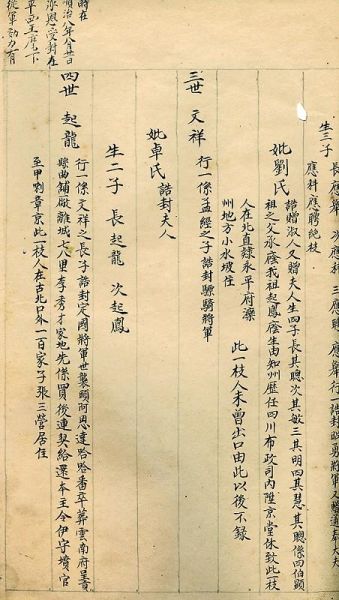 生三子 長應舉 次應科 三應聘 應舉行一誥封
應科應聘絕枝
妣劉氏 誥贈淑人又贈夫人生四子長其聰次其敏三其明四其慧其聰係四伯顯
祖之父承廕我祖起鳳廕生由知州歷任四川布政司內陞京堂休致此一枝
人在北直隸永平府灤
州地方小水坡住 此一枝人未曾出口由此以後不錄
三世 文祥 行一係孟經之子誥封驃騎將軍
妣卓氏 誥封夫人
生二子 長起龍 次起鳳
時在
順治八年八月
承恩受封在
平西王麾下
從軍効力有
四世 起龍 行一係文祥之長子誥封定國將軍世襲頭阿思達哈哈番卒葬雲南府呈貢
縣曲鋪廠離城七八里李秀才家地先係買後連契給還本主令伊守墳官
至甲喇章京此一枝人在古北口外一百家子張三營居住